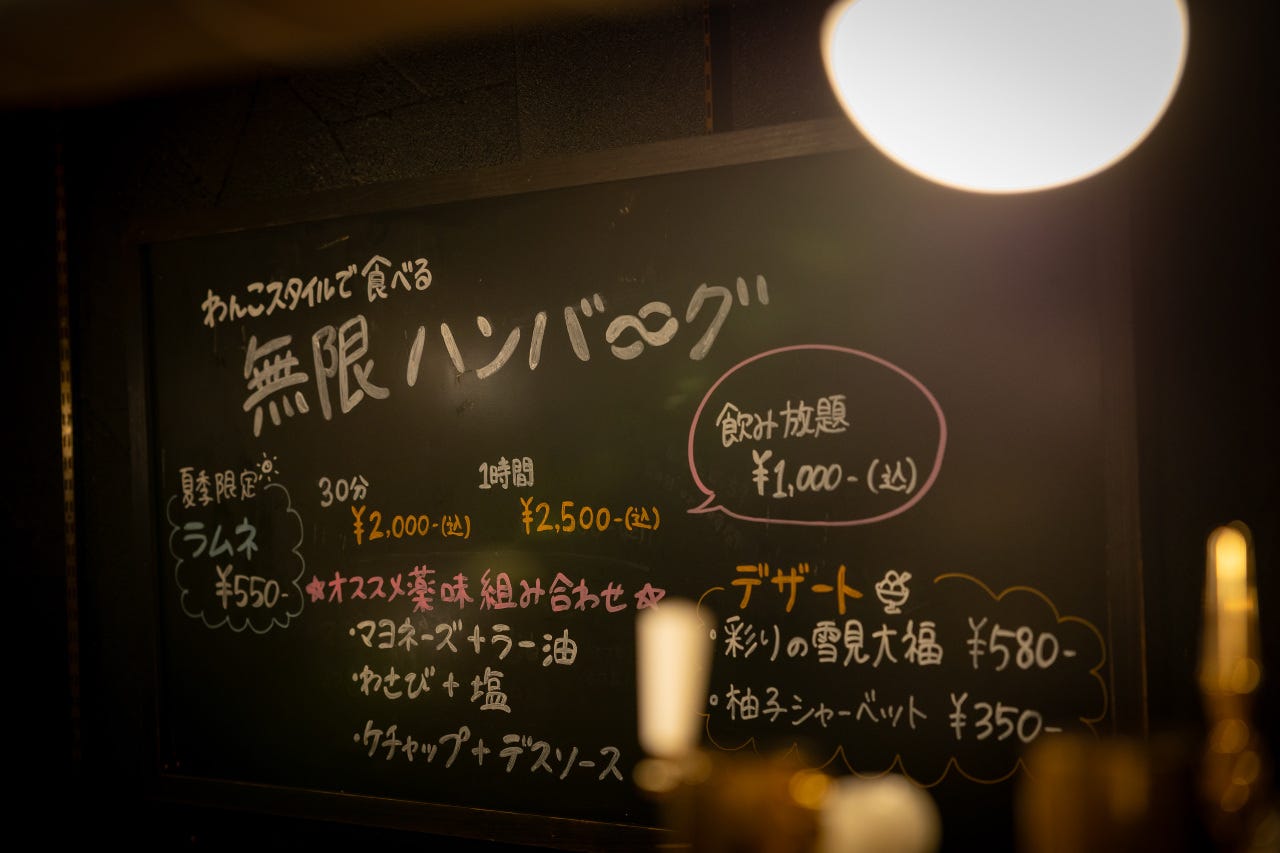 わんこスタイルで食べる
無限ハンバ∞グ
飲み放題
¥1,000-(込)
夏季限定
ラムネ
¥550-
30分
¥2,000-(込)
1時間
¥2,500-(込)
★オススメ薬味組み合わせ★
・マヨネーズ+ラー油
・わさび+塩
・ケチャップ+デスソース
デザート
・彩りの雪見大福 ¥580-
・柚子シャーベット ¥350-